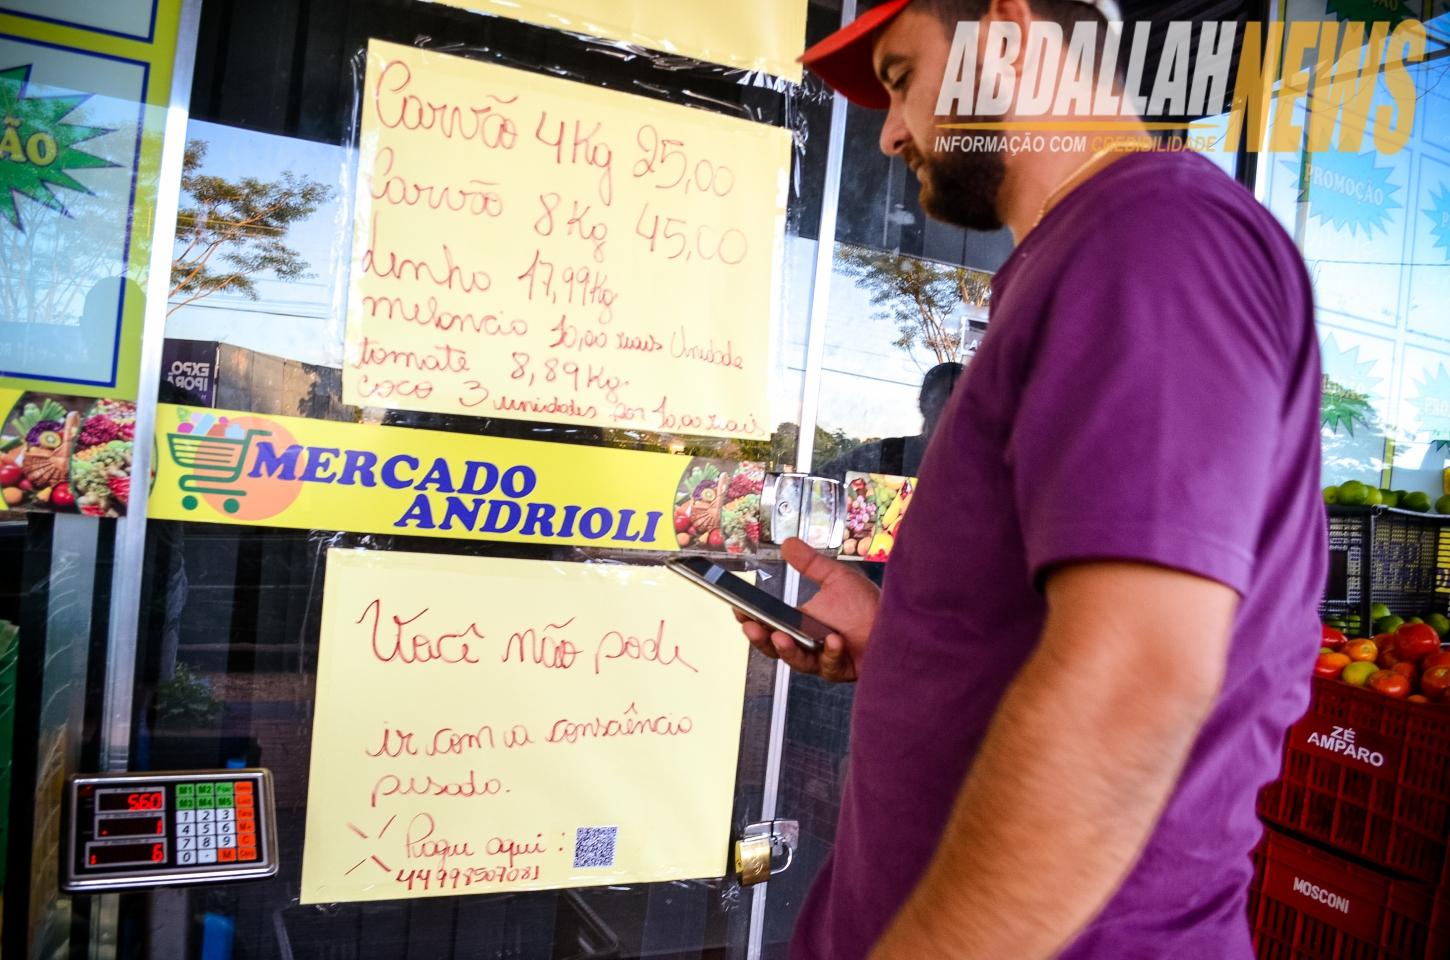 ABDALLAH NEWS
INFORMAÇÃO COM CREDIBILIDADE
ÃO
Carvão 4Kg 25,00
Carvão 8Kg 45,00
linho 17,99Kg
melancia 10,00 reais Unidade
tomate 8,89Kg.
coco 3 unidades por 10,00 reais
PROMOÇÃO
EXPO
IPORÃ
MERCADO
ANDRIOLI
Você não pode
ir com a consciência
pesada.
Pague aqui :
44998507081
560
1
6
M1 M2
M3 M4 M5
1 2 3
4 5 6
7 8 9 C
0 · M
ZÉ
AMPARO
MOSCONI